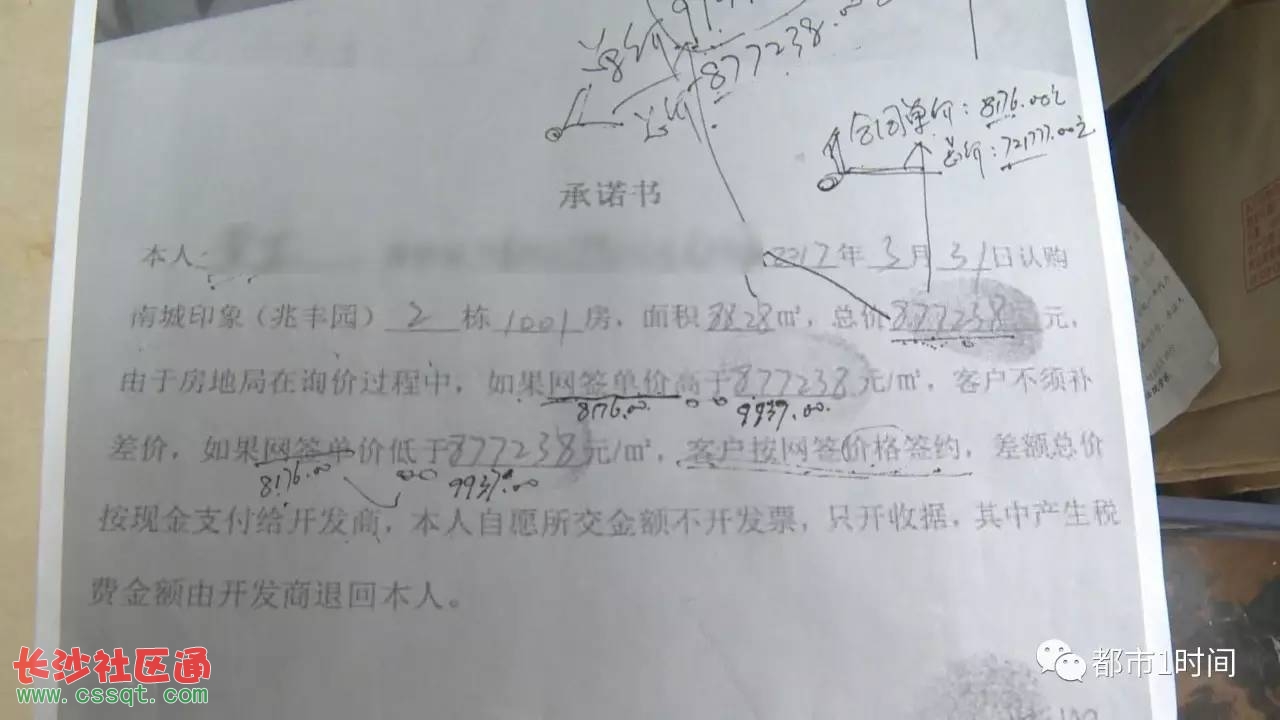 877238.00元
合同单价：8176.00元
总价：721777.00元
承诺书
本人 2017年3月31日认购
南城印象（兆丰园）2栋1001房，面积8828㎡，总价877238元，
由于房地局在询价过程中，如果网签单价高于877238元/㎡，客户不须补
8176.00. 9937.00.
差价，如果网签单价低于877238元/㎡，客户按网签价格签约，差额总价
8176.00 9937.00
按现金支付给开发商，本人自愿所交金额不开发票，只开收据，其中产生税
费金额由开发商退回本人。
长沙社区通
www.cssqt.com
都市1时间